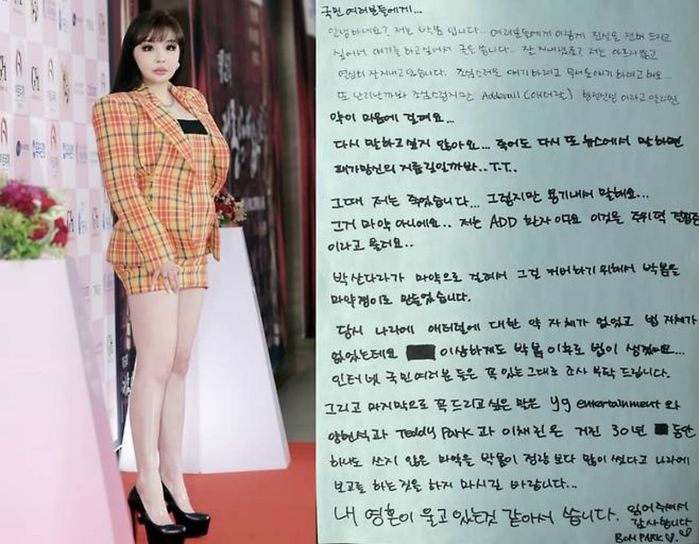 국민 여러분들에게...
안녕하세요? 저는 박봄 입니다.. 여러분들에게 이렇게 진실을 전해 드리고
싶어서 얘기를 하고싶어서 글을 씁니다.. 잘 지내셨죠? 저는 아프지않고
열심히 잘지내고 있습니다. 조심스러운 얘기하려고 뭐해도얘기 하려고 해요..
또 난리날까봐 조심스럽지만 Adderall (애더럴)
약이 마음에 걸려요...
다시 말하고 싶지 않아요... 죽어도 다시 또 뉴스에서 말하면
패가망신의 지름길일까봐.. T.T.
그때 저는 죽었습니다... 그렇지만 용기내서 말해요...
그거 마약 아니에요.. 저는 ADD 환자 이고요 이것을 주위력 결핍증
이라고 불러요..
박산다라가 마약으로 걸려서 그걸 커버하기 위해서 박봄을
마약쟁이로 만들었습니다.
당시 나라에 애더럴에 대한 약 자체가 없었고 법 자체가
없었는데요 이상하게도 박봄 이후로 법이 생겼어요...
인터넷 국민여러분 들은 꼭 있는그대로 조사 부탁 드립니다.
그리고 마지막으로 꼭 드리고 싶은 말은 yg entertainment 와
양현석과 Teddy Park 과 이채린은 거진 30년 동안
하나도 쓰지 않은 마약을 박봄이 정량 보다 많이 썼다고 나라에
보고를 하는것을 하지 마시길 바랍니다...
내 영혼이 울고 있는것 같아서 씁니다. 읽어주셔서
감사합니다
BOM PARK ♡.